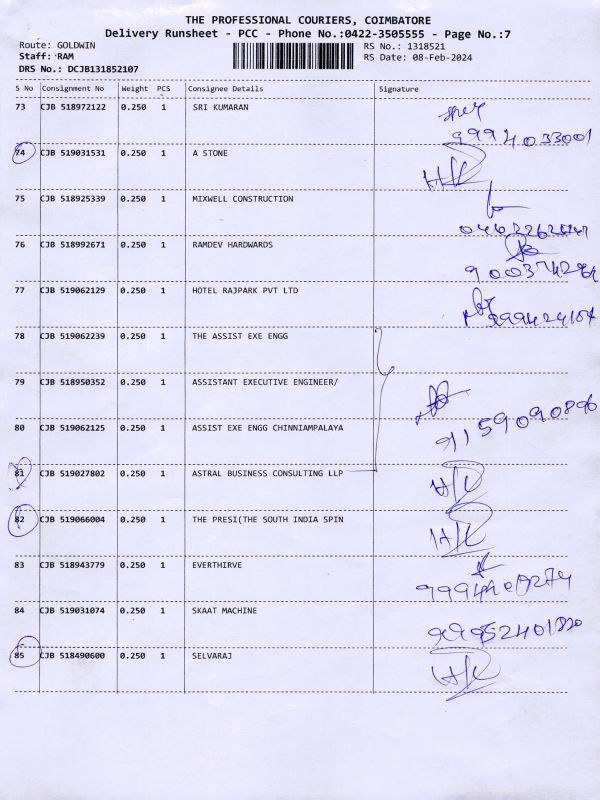 THE PROFESSIONAL COURIERS, COIMBATORE
Delivery Runsheet - PCC - Phone No.:0422-3505555 - Page No.:7
Route: GOLDWIN RS No.: 1318521
Staff: RAM RS Date: 08-Feb-2024
DRS No.: DCJB131852107
S No Consignment No Weight PCS Consignee Details Signature
73 CJB 518972122 0.250 1 SRI KUMARAN
9994033001
74 CJB 519031531 0.250 1 A STONE
75 CJB 518925339 0.250 1 MIXWELL CONSTRUCTION
76 CJB 518992671 0.250 1 RAMDEV HARDWARDS
77 CJB 519062129 0.250 1 HOTEL RAJPARK PVT LTD
78 CJB 519062239 0.250 1 THE ASSIST EXE ENGG
79 CJB 518950352 0.250 1 ASSISTANT EXECUTIVE ENGINEER/
80 CJB 519062125 0.250 1 ASSIST EXE ENGG CHINNIAMPALAYA
9159090896
81 CJB 519027802 0.250 1 ASTRAL BUSINESS CONSULTING LLP
82 CJB 519066004 0.250 1 THE PRESI(THE SOUTH INDIA SPIN
83 CJB 518943779 0.250 1 EVERTHIRVE
84 CJB 519031074 0.250 1 SKAAT MACHINE
85 CJB 518490600 0.250 1 SELVARAJ